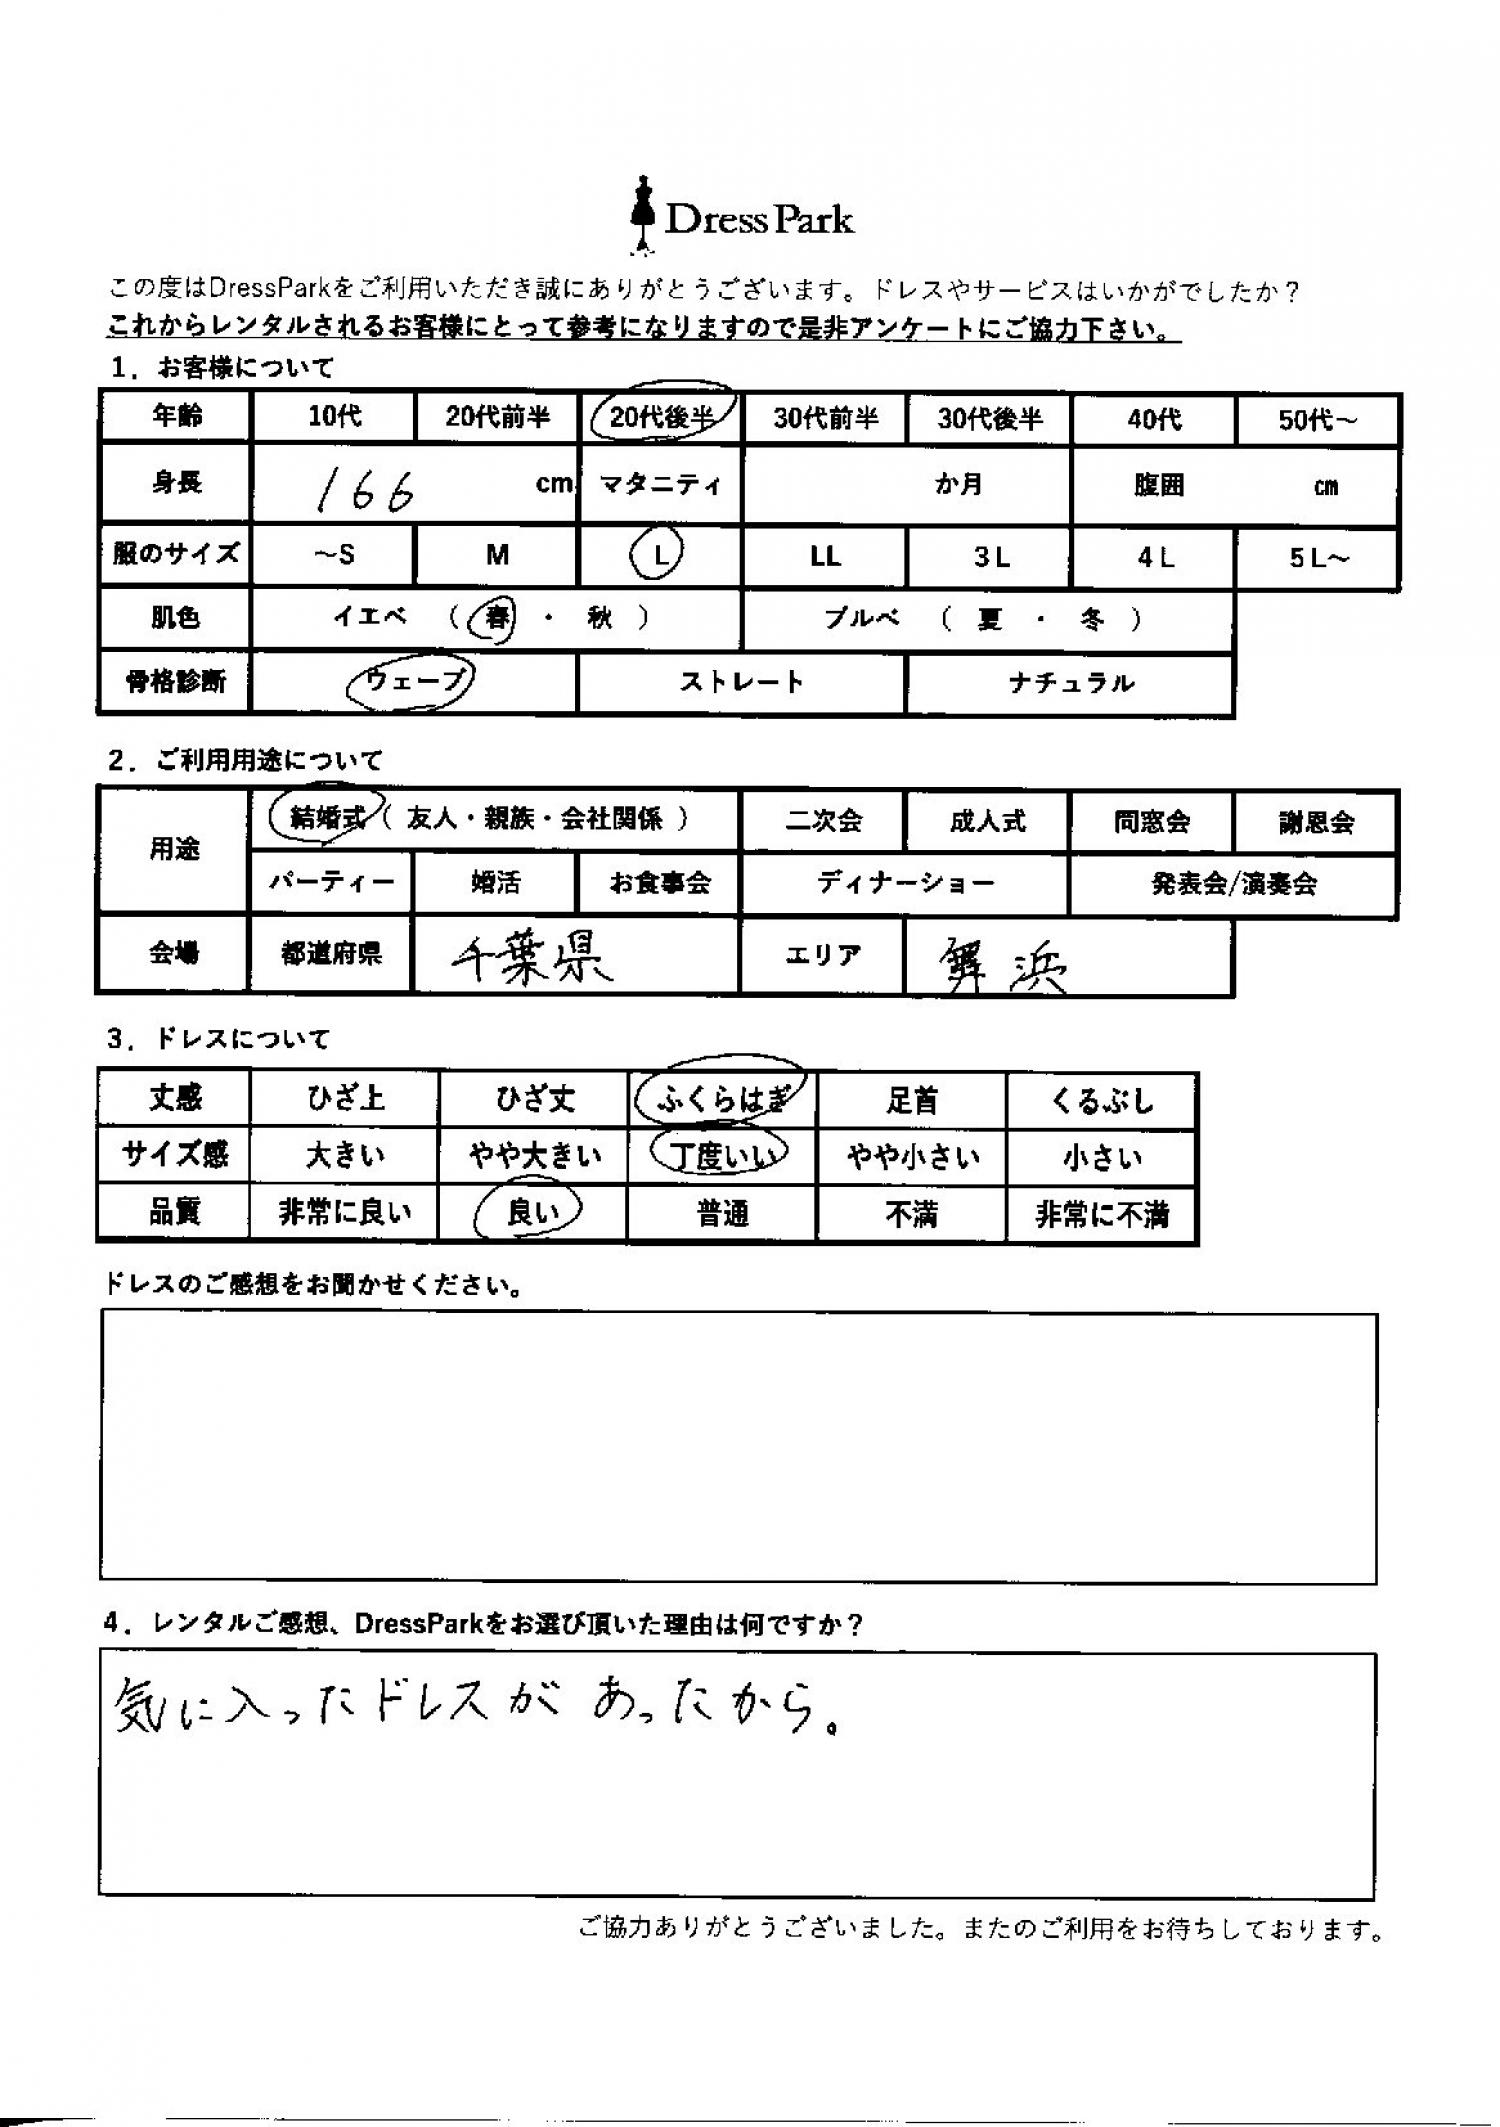 Dress Park
この度はDressParkをご利用いただき誠にありがとうございます。ドレスやサービスはいかがでしたか？
これからレンタルされるお客様にとって参考になりますので是非アンケートにご協力下さい。
1．お客様について
年齢 10代 20代前半 20代後半 30代前半 30代後半 40代 50代～
身長 166 cm マタニティ か月 腹囲 cm
服のサイズ ～S M L LL 3L 4L 5L～
肌色 イエベ （ 春 ・ 秋 ） ブルベ （ 夏 ・ 冬 ）
骨格診断 ウェーブ ストレート ナチュラル
2．ご利用用途について
用途 結婚式（ 友人・親族・会社関係 ） 二次会 成人式 同窓会 謝恩会
パーティー 婚活 お食事会 ディナーショー 発表会/演奏会
会場 都道府県 千葉県 エリア 舞浜
3．ドレスについて
丈感 ひざ上 ひざ丈 ふくらはぎ 足首 くるぶし
サイズ感 大きい やや大きい 丁度いい やや小さい 小さい
品質 非常に良い 良い 普通 不満 非常に不満
ドレスのご感想をお聞かせください。
4．レンタルご感想、DressParkをお選び頂いた理由は何ですか？
気に入ったドレスがあったから。
ご協力ありがとうございました。またのご利用をお待ちしております。